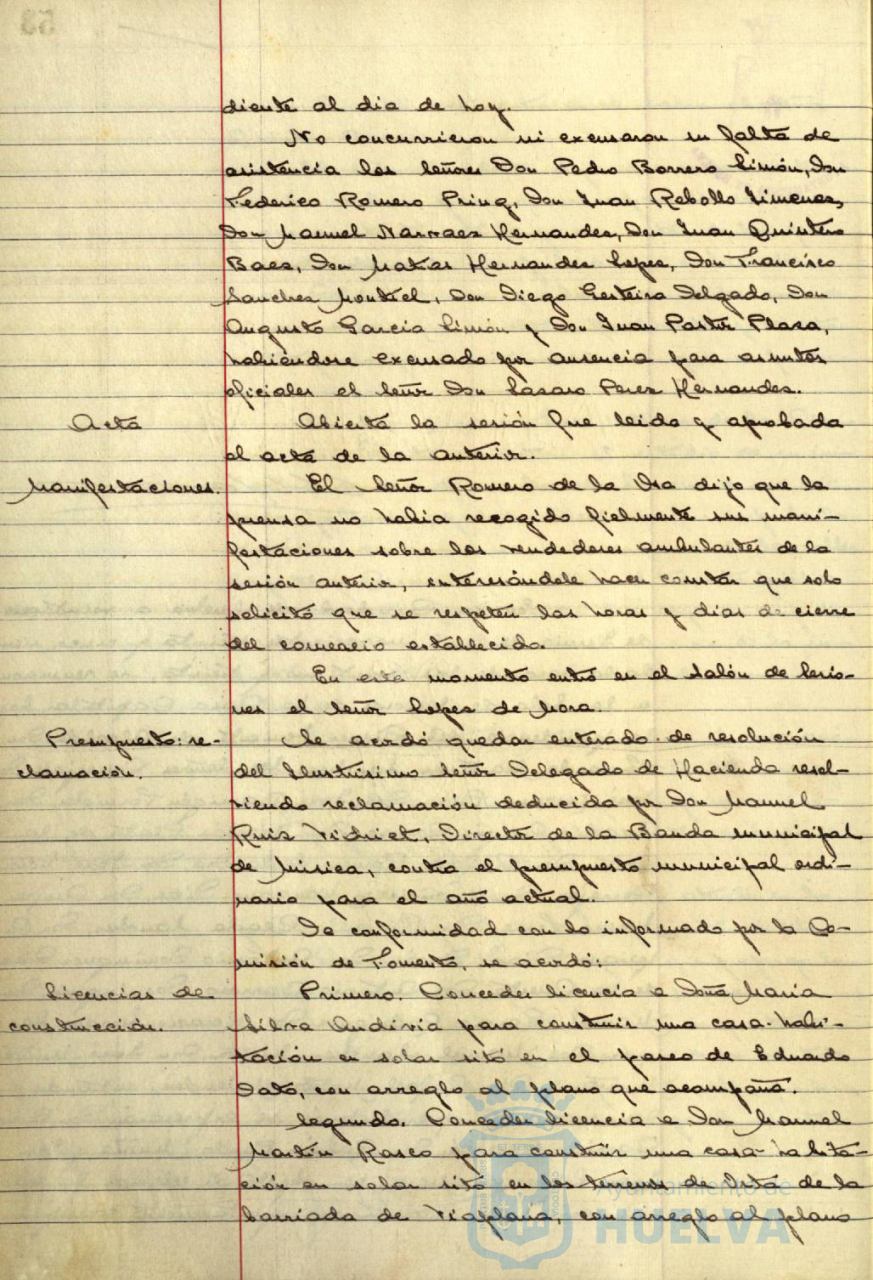 53
diente al dia de hoy.
No concurrieron ni excusaron su falta de
asistencia los señores Don Pedro Borrero Limón, Don
Federico Romero Pring, Don Juan Rebollo Jimenez,
Don Manuel Narvaez Hernandez, Don Juan Quintero
Baez, Don Matias Hernandez Lopez, Don Francisco
Sanchez Montiel, Don Diego Delgado, Don
Augusto Garcia Limón y Don Juan Pastor Plaza,
habiéndose excusado por ausencia para asuntos
oficiales el señor Don Lazaro Perez Hernandez.
Acta
Abierta la sesión fue leido y aprobada
el acta de la anterior.
Manifestaciones.
El señor Romero de la Osa dijo que la
prensa no habia recogido fielmente sus mani-
festaciones sobre los vendedores ambulantes de la
sesión anterior, interesándole hacer constar que solo
solicitó que se respeten las horas y dias de cierre
del comercio establecido.
En este momento entró en el salón de sesio-
nes el señor Lopez de Mora.
Presupuesto: re-
clamación.
Se acordó quedar enterado de resolución
del Ilustrisimo señor Delegado de Hacienda resol-
viendo reclamación deducida por Don Manuel
Ruiz Vidriet, Director de la Banda municipal
de Música, contra el presupuesto municipal ordi-
nario para el año actual.
De conformidad con lo informado por la Co-
misión de Fomento, se acordó:
Licencias de
construcción.
Primero. Conceder licencia a Doña Maria
Silva Andivia para construir una casa-habi-
tación en solar sito en el paseo de Eduardo
Dato, con arreglo al plano que acompaña.
Segundo. Conceder licencia a Don Manuel
Martín Rasco para construir una casa-habita-
ción en solar sito en los terrenos de de la
barriada de Viaplana, con arreglo al plano
Ayuntamiento de
HUELVA